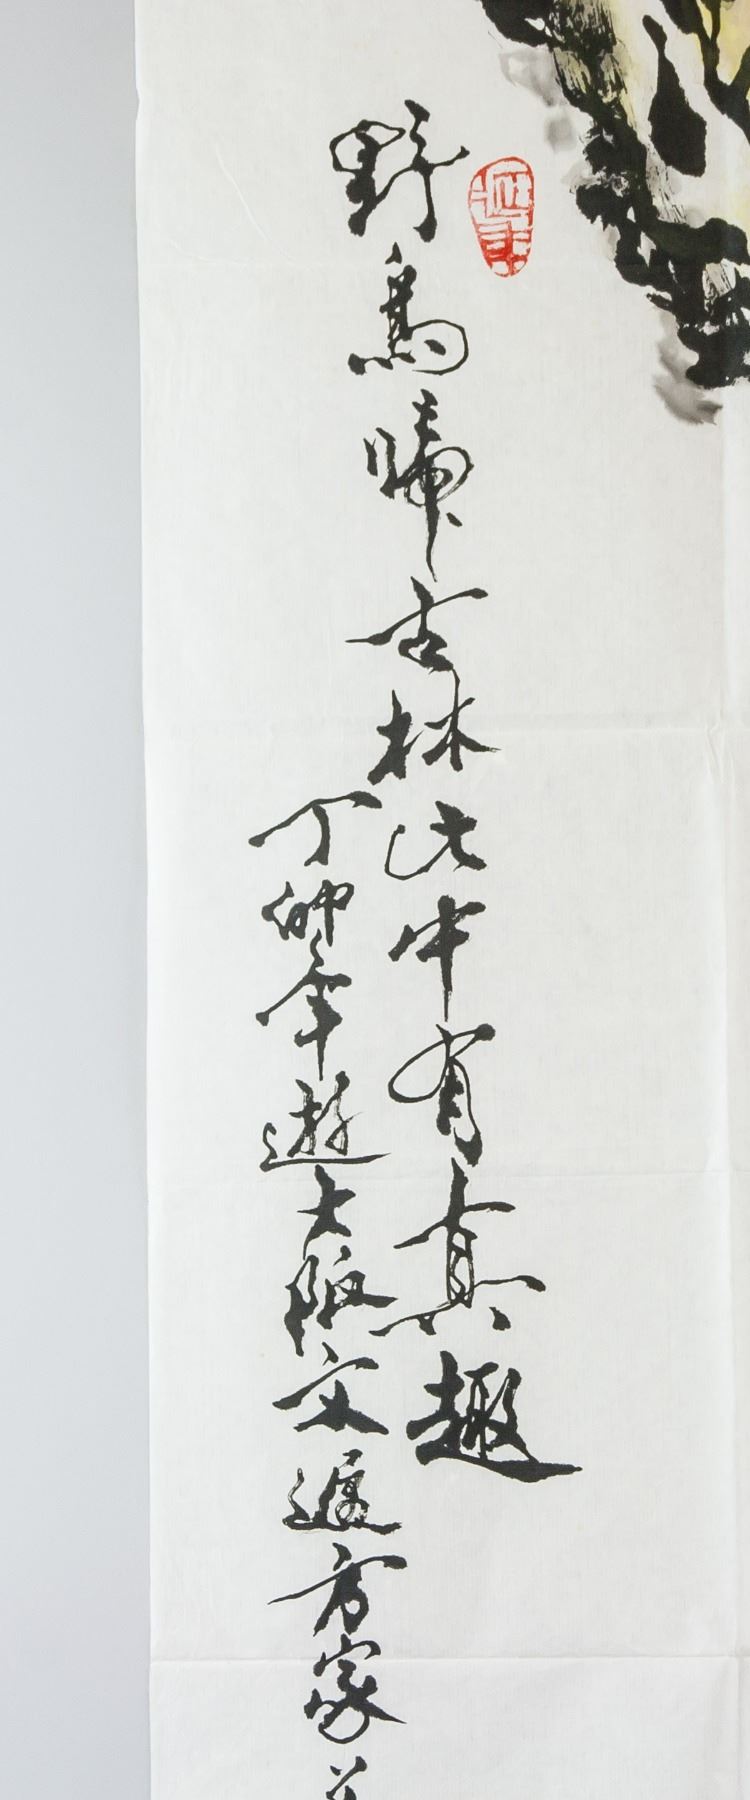 野鳥啼古林此中有真趣
丁卯年遊大阪文遲方家